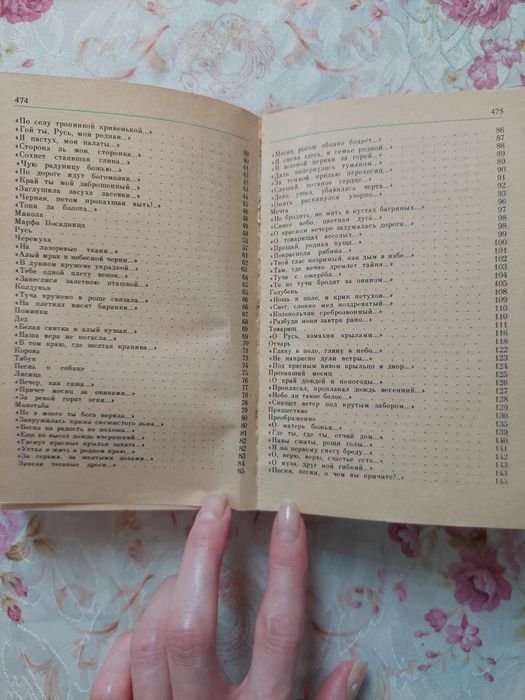 474
«По селу тропинкой кривенькой...»
«Гой ты, Русь, моя родная...»
«Я пастух, мои палаты...»
«Сторона ль моя, сторонка...»
«Сохнет стаявшая глина...»
«Чую радуницу божью...»
«По дороге идут богомолки...»
«Край ты мой заброшенный...»
«Заглушила засуха засевки...»
«Черная, потом пропахшая выть!..»
«Топи да болота...»
Микола
Марфа Посадница
Русь
Черемуха
«На лазоревые ткани...»
«Алый мрак в небесной черни...»
«В лунном кружеве украдкой...»
«Тебе одной плету венок...»
«Занеслися залетною пташкой...»
Колдунья
«Туча кружево в роще связала...»
«На плетнях висят баранки...»
Поминки
Дед
«Белая свитка и алый кушак...»
«Наша вера не погасла...»
«В том краю, где желтая крапива...»
Корова
Табун
Песнь о собаке
Лисица
«Вечер, как сажа...»
«Прячет месяц за овинами...»
«За рекой горят огни...»
Молотьба
«Не в моего ты бога верила...»
«Закружилась пряжа снежистого льна...»
«Весна на радость не похожа...»
«Еще не высох дождь вчерашний...»
«Гаснут красные крылья заката...»
«Устал я жить в родном краю...»
«За горами, за желтыми долами...»
Запели тесаные дроги...» 85
475
«Месяц рогом облако бодает...» 86
«Я снова здесь, в семье родной...»
«В зеленой церкви за горой...»
«Даль подернулась туманом...»
«За темной прядью перелесиц...»
«Слушай, поганое сердце...»
«День ушел, убавилась черта...»
«Опять раскинулся узорно...»
Мечта
«Не бродить, не мять в кустах багряных...»
«Синее небо, цветная дуга...»
«О красном вечере задумалась дорога...»
«О товарищах веселых...»
«Прощай, родная пуща...»
«Покраснела рябина...»
«Твой глас незримый, как дым в избе...»
«Там, где вечно дремлет тайна...»
«Тучи с ожерёба...»
«То не тучи бродят за овином...»
Голубень
«Нощь и поле, и крик петухов...»
«Снег, словно мед ноздреватый...»
«Колокольчик среброзвонный...»
«Разбуди меня завтра рано...»
Товарищ
«О Русь, взмахни крылами...»
Отчарь
«Гляну в поле, гляну в небо...»
«Не напрасно дули ветры...»
«Под красным вязом крыльцо и двор...»
Пропавший месяц
«О край дождей и непогоды...»
«Проплясал, проплакал дождь весенний...»
«Небо ли такое белое...»
«Свищет ветер под крутым забором...»
Пришествие
Преображение
«О матерь божья...»
«Где ты, где ты, отчий дом...»
«Нивы сжаты, рощи голы...»
«Я по первому снегу бреду...»
«О, верю, верю, счастье есть...»
«О муза, друг мой гибкий...»
«Песни, песни, о чем вы кричите?..» 145